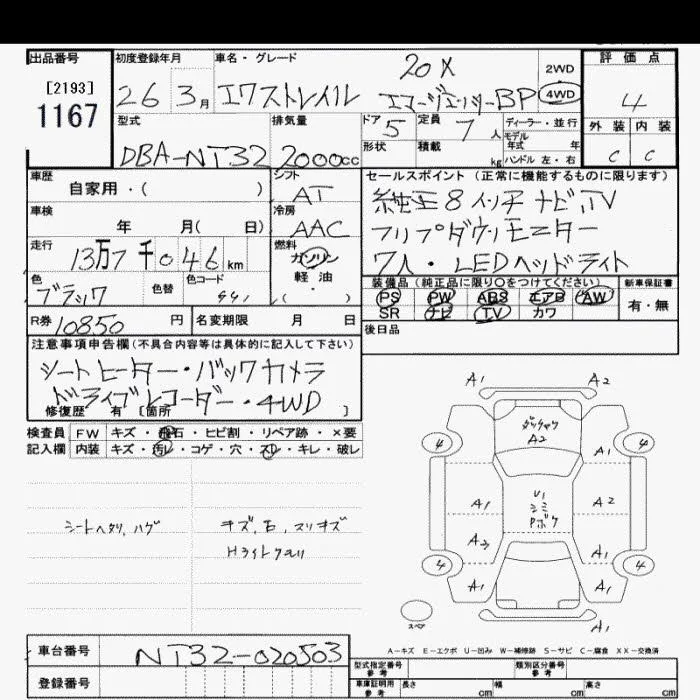 出品番号
[2193]
1167
初度登録年月
26 3月
車名・グレード
20X
エクストレイル エマージェンシーBP
2WD
4WD
評価点
4
外装 内装
C C
型式
DBA-NT32
排気量
2000cc
ドア 5
形状
定員 7人
積載 kg
ディーラー・並行
モデル年式 年
ハンドル 左・右
車歴
自家用・( )
シフト
AT
車検
年 月( 日)
冷房
AAC
走行
13万7千046km
燃料
ガソリン
軽・油
・( )
色
ブラック
色替
色コード
R券 10850円
名変期限 月 日
セールスポイント(正常に機能するものに限ります)
純正8インチナビTV
フリップダウンモニター
7人・LEDヘッドライト
装備品(純正品に限り○をつけてください)
PS PW ABS エアB AW
SR ナビ TV カワ
新車保証書
有・無
後日品
注意事項申告欄(不具合内容等は具体的に記入して下さい)
シートヒーター・バックカメラ
ドライブレコーダー・4WD
修復歴 有 [箇所 ]
検査員
記入欄
FW キズ・飛石・ヒビ割・リペア跡・×要
内装 キズ・汚レ・コゲ・穴・スレ・キレ・破レ
シートヘタリ、ハゲ
キズ、石、スリキズ
Hライトクスリ
A1 A2
A2
4 4
A1
A1 A2
U1
A1
4 4
A1 A1
A1
スペア
A-キズ E-エクボ U-凹み W-補修跡 S-サビ C-腐食 XX-交換済
車台番号 NT32-020503
登録番号
型式指定番号
参考
類別区分番号
参考
車庫証明用
参考
長さ cm 幅 cm 高さ cm